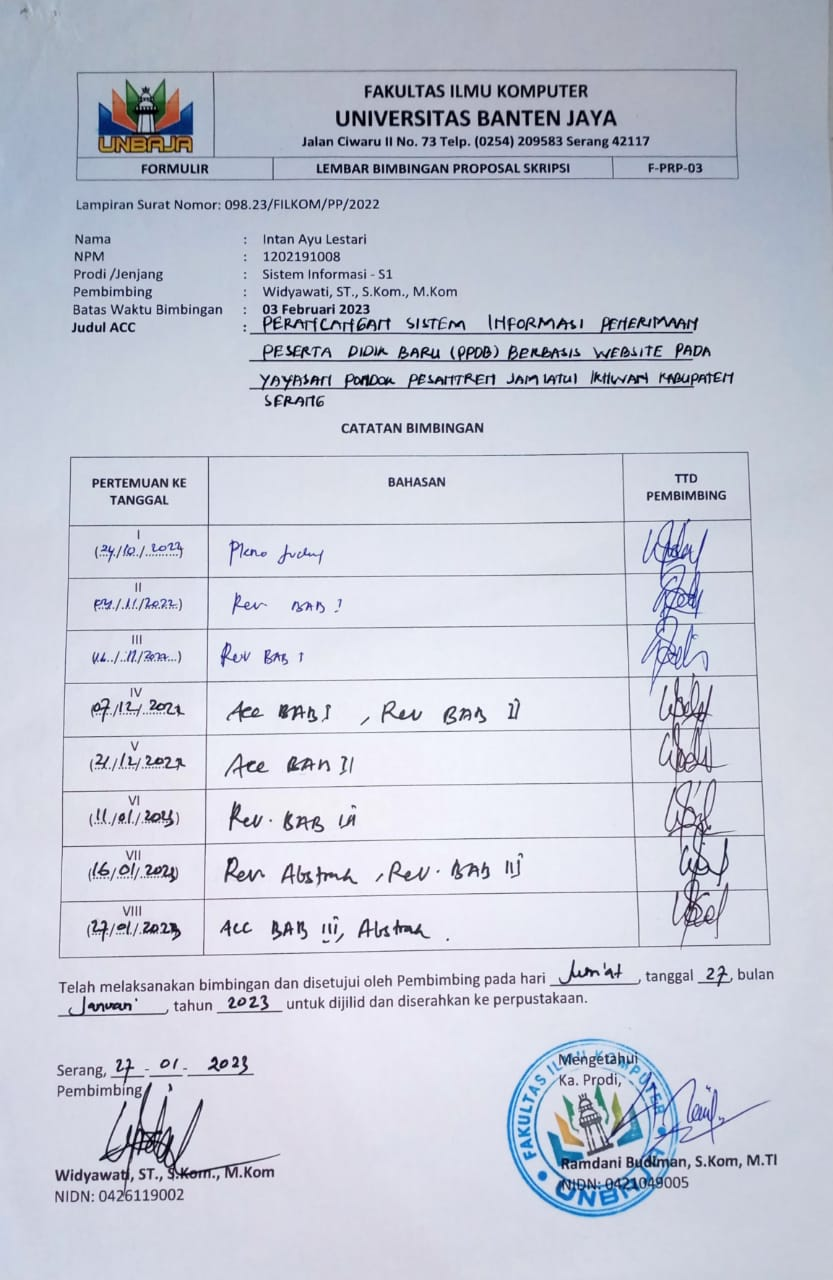 UNBAJA
FAKULTAS ILMU KOMPUTER
UNIVERSITAS BANTEN JAYA
Jalan Ciwaru II No. 73 Telp. (0254) 209583 Serang 42117
FORMULIR LEMBAR BIMBINGAN PROPOSAL SKRIPSI F-PRP-03
Lampiran Surat Nomor: 098.23/FILKOM/PP/2022
Nama : Intan Ayu Lestari
NPM : 1202191008
Prodi /Jenjang : Sistem Informasi - S1
Pembimbing : Widyawati, ST., S.Kom., M.Kom
Batas Waktu Bimbingan : 03 Februari 2023
Judul ACC : PERANCANGAN SISTEM INFORMASI PENERIMAAN
PESERTA DIDIK BARU (PPDB) BERBASIS WEBSITE PADA
YAYASAN PONDOK PESANTREN JAMIATUL IKHWAN KABUPATEN
SERANG
CATATAN BIMBINGAN
PERTEMUAN KE TANGGAL BAHASAN TTD PEMBIMBING
I
(24/10/2022)
II
Rev BAB I
III
Rev BAB I
IV
07/12/2022 Acc BAB I , Rev BAB II
V
(21/12/2022 Acc BAB II
VI
(11/01/2023) Rev. BAB III
VII
(16/01/2023) Rev Abstrak , Rev. BAB III
VIII
(27/01/2023 ACC BAB III, Abstrak .
Telah melaksanakan bimbingan dan disetujui oleh Pembimbing pada hari Jum'at, tanggal 27, bulan
Januari, tahun 2023 untuk dijilid dan diserahkan ke perpustakaan.
Serang, 27 - 01 - 2023
Pembimbing
Widyawati, ST., S.Kom., M.Kom
NIDN: 0426119002
Mengetahui
Ka. Prodi,
FAKULTAS ILMU KOMPUTER
UNBAJA
Ramdani Budiman, S.Kom, M.TI
NIDN: 0421049005